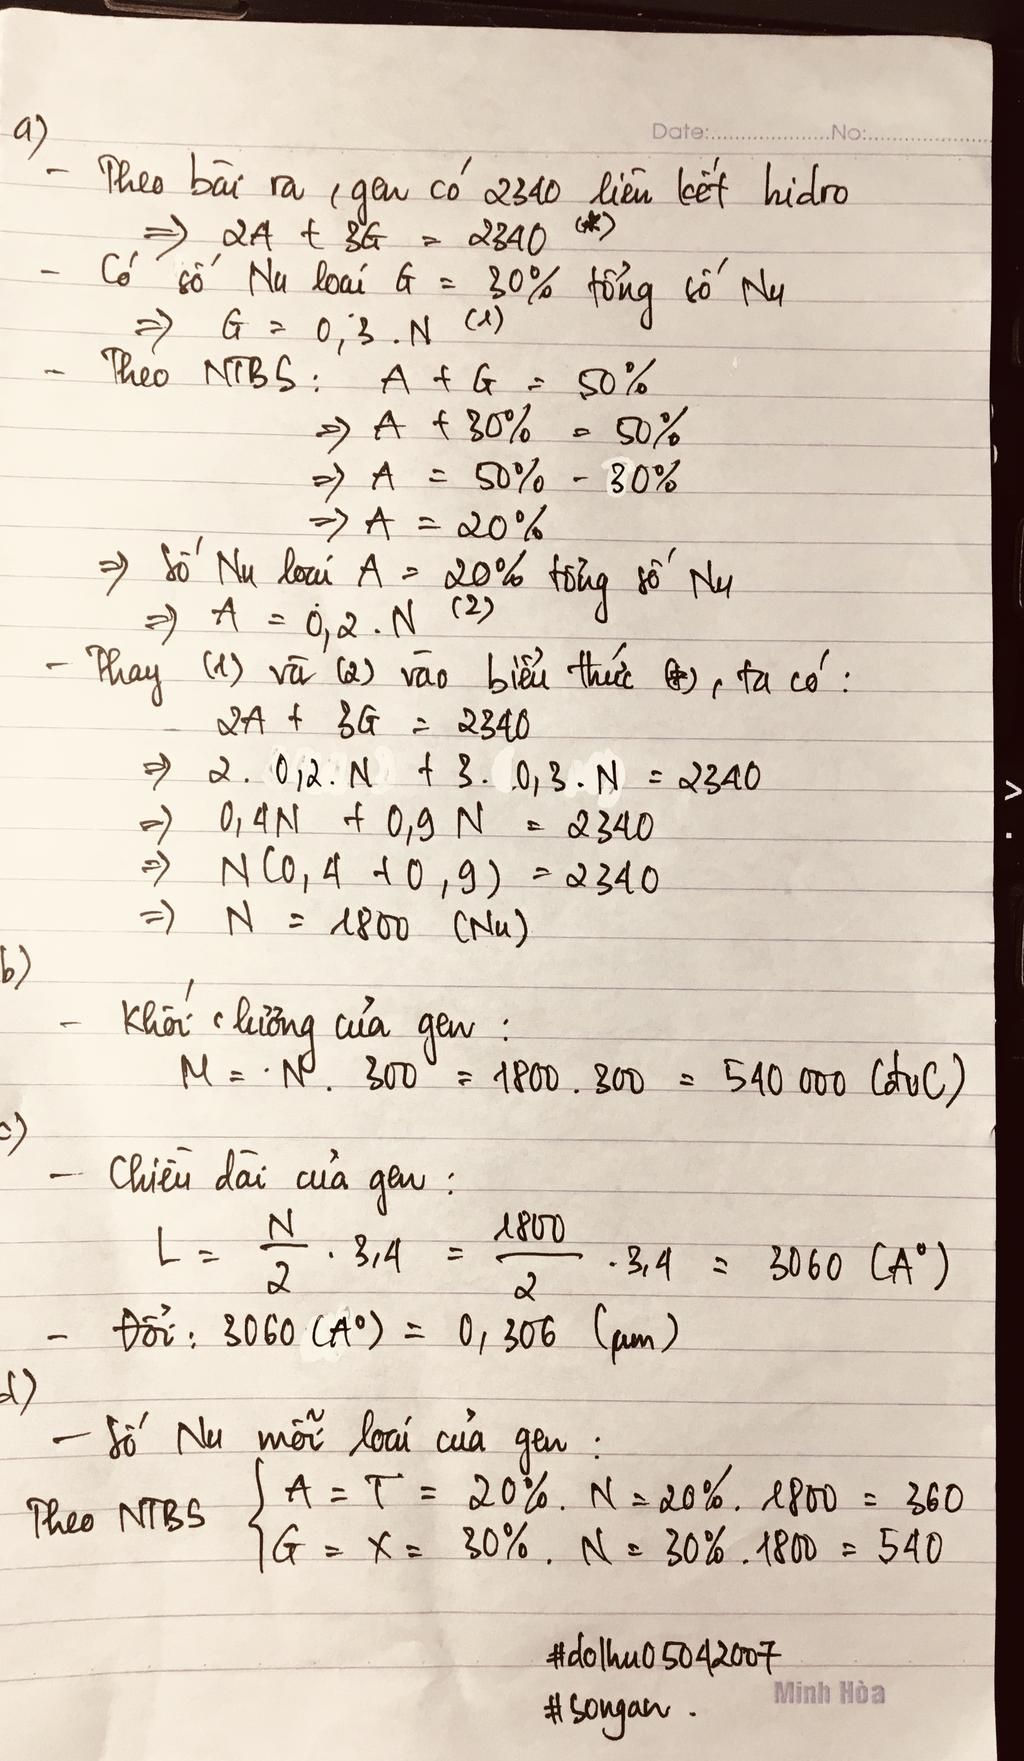 Date:....................No:.....................
a)
- Theo bài ra, gen có 2340 liên kết hidro
=> 2A + 3G = 2340 (*)
- Có số Nu loại G = 30% tổng số Nu
=> G = 0,3.N (1)
- Theo NTBS: A + G = 50%
=> A + 30% = 50%
=> A = 50% - 30%
=> A = 20%
=> Số Nu loại A = 20% tổng số Nu
=> A = 0,2.N (2)
- Thay (1) và (2) vào biểu thức (*), ta có:
2A + 3G = 2340
=> 2. 0,2.N + 3. 0,3.N = 2340
=> 0,4N + 0,9N = 2340
=> N(0,4 + 0,9) = 2340
=> N = 1800 (Nu)
b)
- Khối lượng của gen:
M = N. 300 = 1800.300 = 540 000 (đvC)
c)
- Chiều dài của gen:
L = N/2 . 3,4 = 1800/2 . 3,4 = 3060 (A°)
- Đổi: 3060 (A°) = 0,306 (µm)
d)
- Số Nu mỗi loại của gen:
Theo NTBS { A = T = 20%. N = 20%. 1800 = 360
G = X = 30%. N = 30%.1800 = 540
#dolhu05042007
Minh Hòa
#songan.